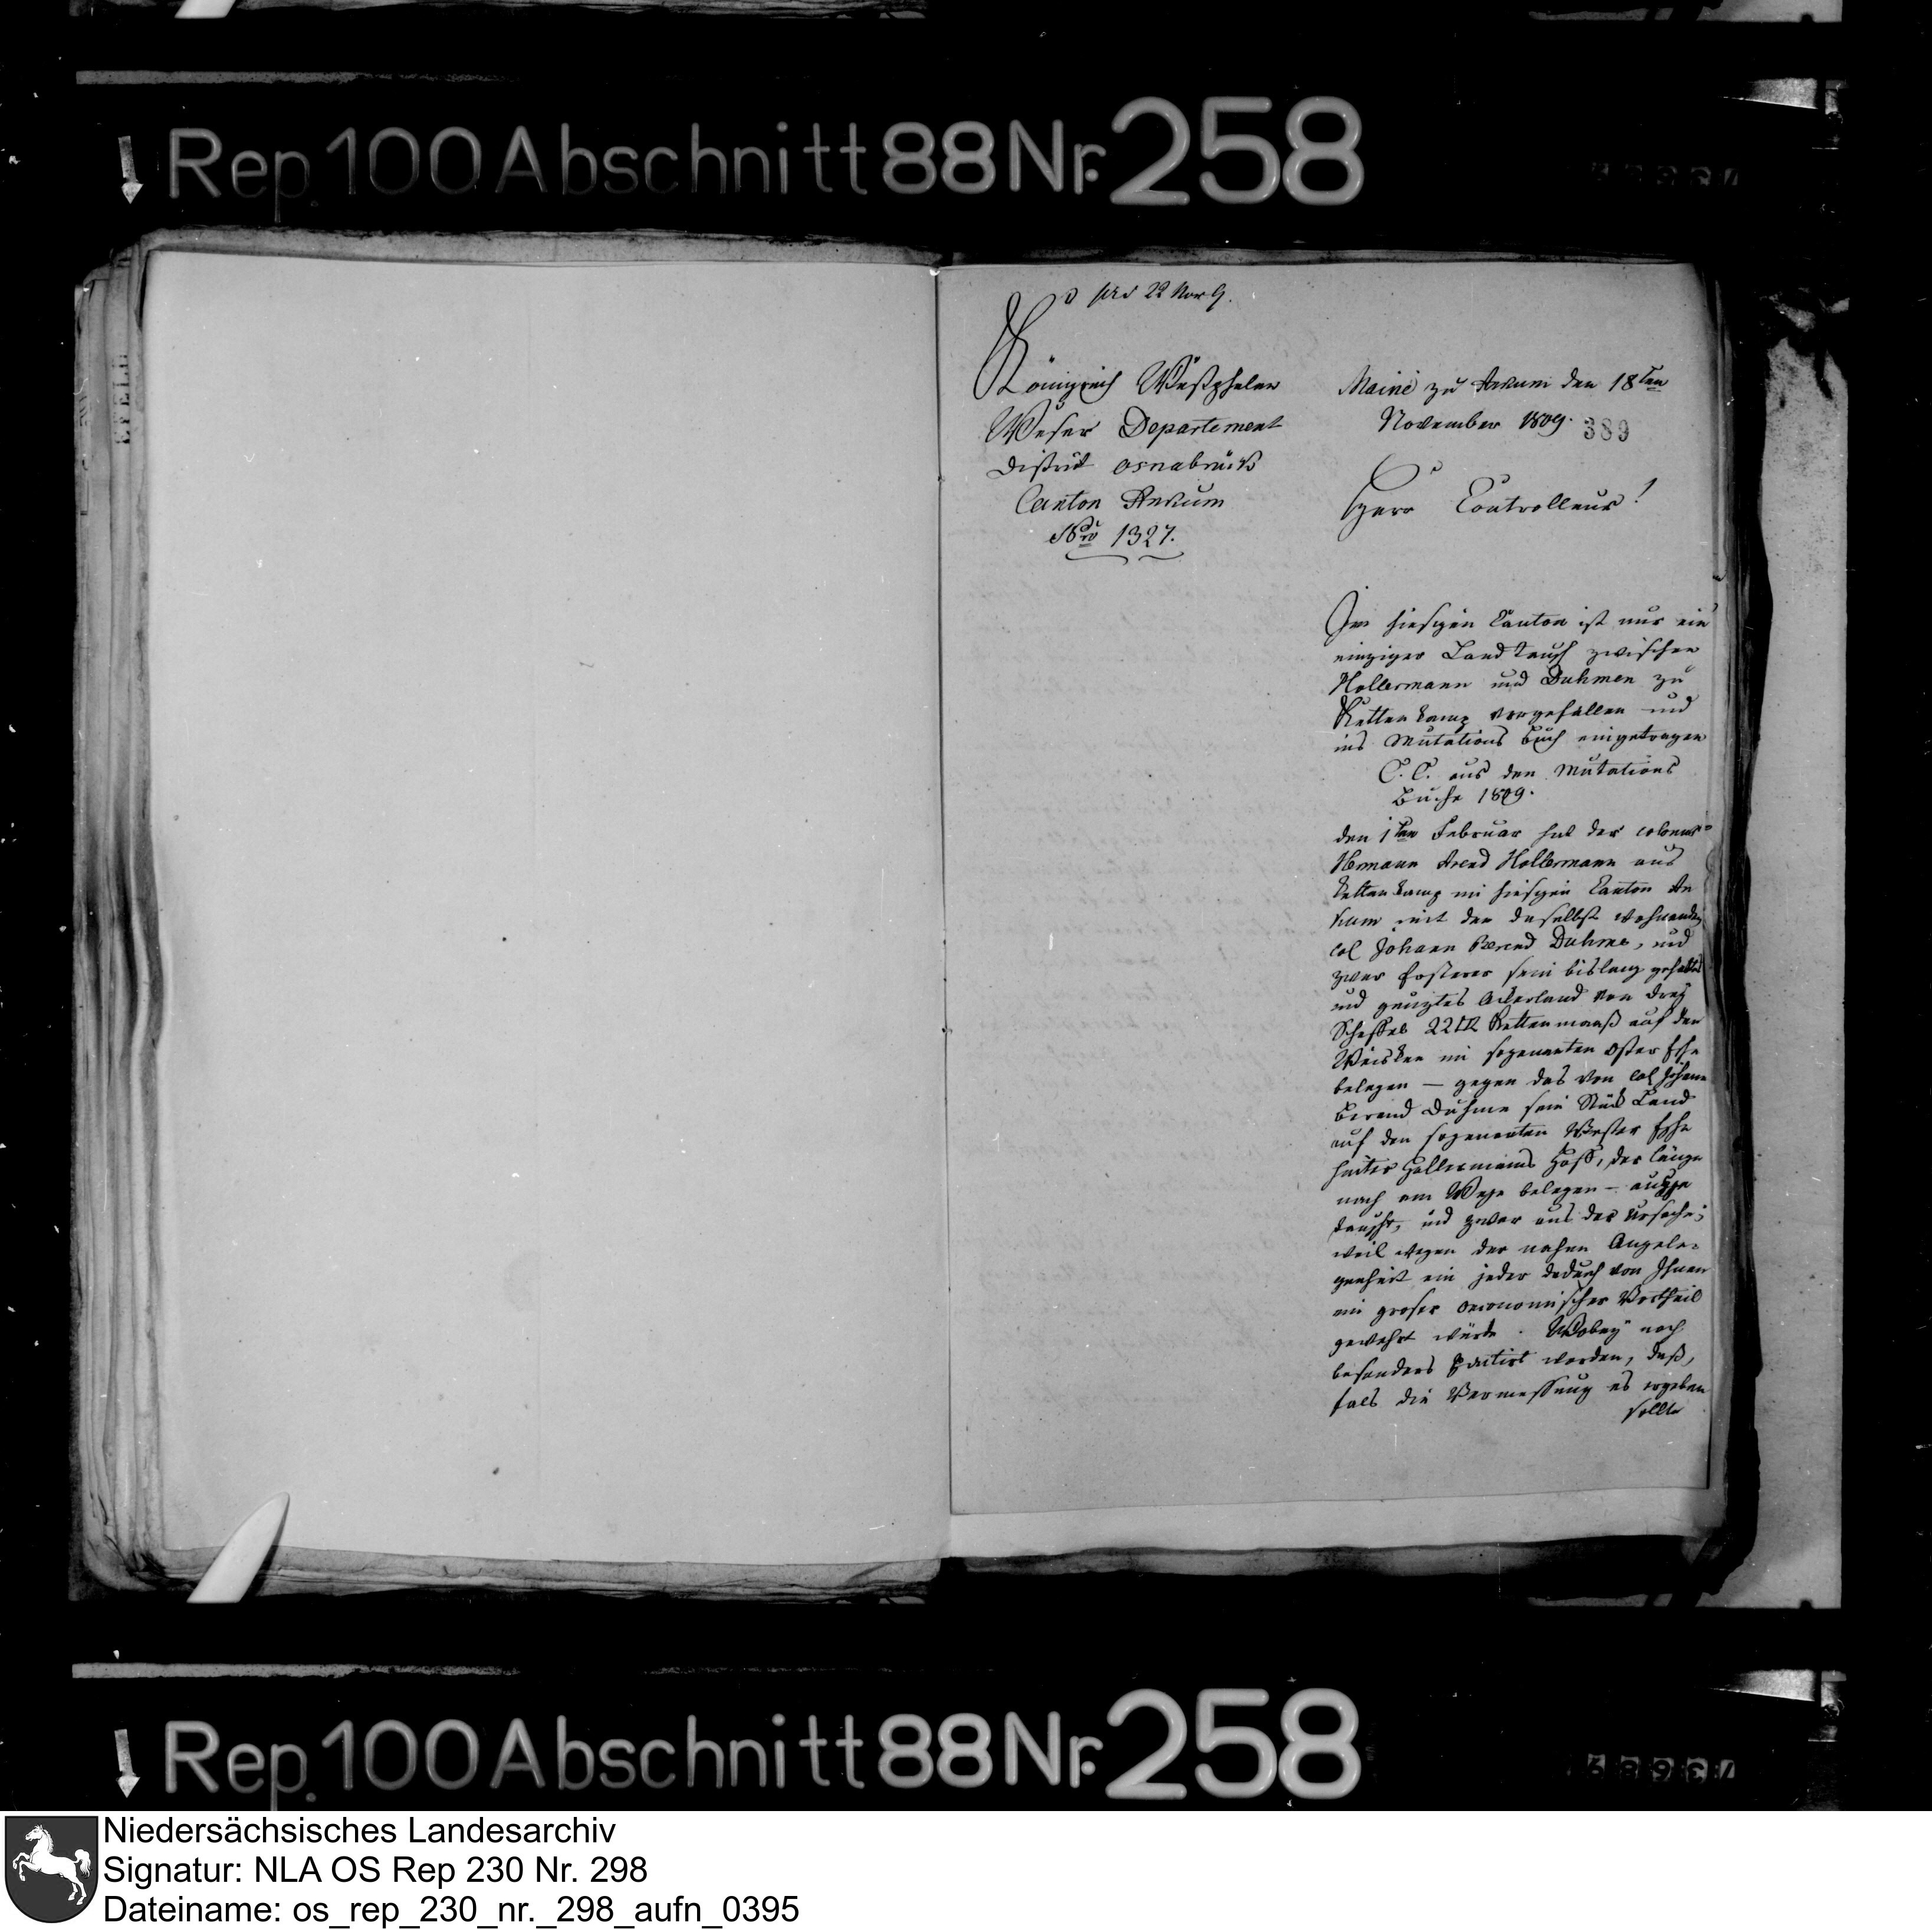 Rep. 100 Abschnitt 88 Nr. 258
prs 22 Nov 9.
Königreich Westphalen
Weser Departement
District Osnabrück
Canton Ankum
Nro 1327.
Mairie zu Ankum den 18ten
November 1809.
389
Herr Controlleur!
Im hiesigen Canton ist nur ein
einziger Landtausch zwischen
Hollermann und Duhmen zu
Kettenkamp vorgefallen und
ins Mutations Buch eingetragen
C. C. aus den Mutations
Buche 1809.
den 1ten Februar hat der colonus
Hermann Arend Hollermann aus
Kettenkamp im hiesigen Canton An
kum mit den daselbst wohnenden
col Johann Berend Duhme, und
zwar Ersterer sein bislang gehabtes
und genuztes Ackerland von drey
Scheffel 22 Kettenmaaß auf den
im sogenanten Oster Esche
belegen — gegen das von col Johann
Berend Duhme sein Stück Land
auf den sogenanten Wester Esche
hinter Hollermanns Hoff, der länge
nach am Wege belegen — ausge
tauscht, und zwar aus der Ursache;
weil wegen der nahen Angele-
genheit ein jeder dadurch von Ihnen
ein groser oeconomischer Vortheil
gewährt würde. Wobey noch
besonders worden, daß,
fals die Vermessung es ergeben
sollte
Rep. 100 Abschnitt 88 Nr. 258
Niedersächsisches Landesarchiv
Signatur: NLA OS Rep 230 Nr. 298
Dateiname: os_rep_230_nr._298_aufn_0395